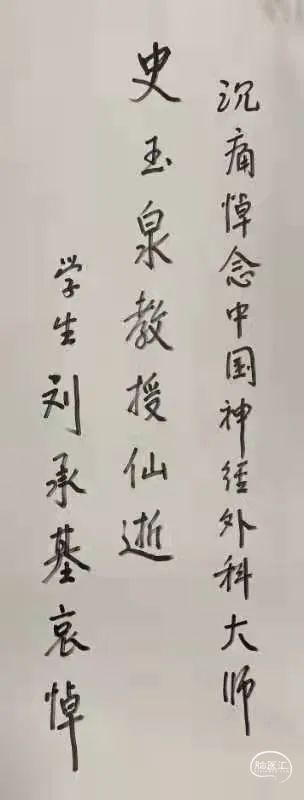 沉痛悼念中国神经外科大师
史玉泉教授仙逝
学生刘承基哀悼
脑医汇